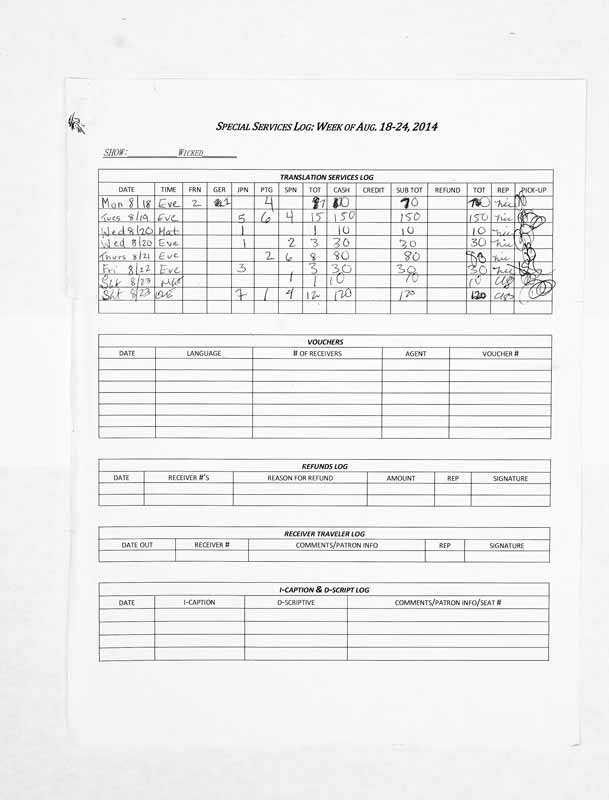 SPECIAL SERVICES LOG: WEEK OF AUG. 18-24, 2014
SHOW: WICKED
TRANSLATION SERVICES LOG
DATE TIME FRN GER JPN PTG SPN TOT CASH CREDIT SUB TOT REFUND TOT REP PICK-UP
Mon 8/18 Eve 2 1 4 70
Tues 8/19 Eve 5 6 4 15 150 150 150
Wed 8/20 Mat 1 1 10 10 10
Wed 8/20 Eve 1 2 3 30 30 30
Thurs 8/21 Eve 2 6 8 80 80
Fri 8/22 Eve 3 3 30 30 30
Sat 8/23 1 1 10 10 10
Sat 8/23 7 1 4 12 120 120 120
VOUCHERS
DATE LANGUAGE # OF RECEIVERS AGENT VOUCHER #
REFUNDS LOG
DATE RECEIVER #'S REASON FOR REFUND AMOUNT REP SIGNATURE
RECEIVER TRAVELER LOG
DATE OUT RECEIVER # COMMENTS/PATRON INFO REP SIGNATURE
I-CAPTION & D-SCRIPT LOG
DATE I-CAPTION D-SCRIPTIVE COMMENTS/PATRON INFO/SEAT #